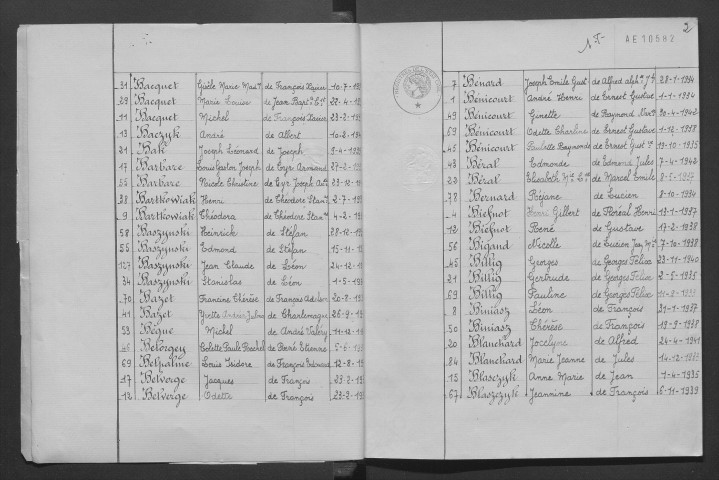 31 Bacquet Gisèle Marie de François 10-7-19
29 Bacquet Marie Louise de Jean Bapt. 22-4-19
11 Bacquet Michel de François Xavier 23-2-19
13 Baczyk André de Albert 10-2-19
21 Bak Joseph Léonard de Joseph 9-4-19
17 Barbare Louis Gaston Joseph de Cyr Armand 27-2-19
55 Barbare Nicole Christine de Cyr Joseph 23-12-19
28 Bartkowiak Henri de Théodore 2-7-19
9 Bartkowiak Théodora de Théodore 4-2-19
58 Baszynski Heinrick de Stéfan 28-12-19
55 Baszynski Edmond de Stéfan 15-11-19
127 Baszynski Jean Claude de Léon 24-12-19
34 Baszynski Stanislas de Léon 1-5-19
70 Bazet Francine Thérèse de François 20-8-19
41 Bazet Yvette de Charlemagne 26-9-19
53 Bègue Michel de André Valéry 11-12-19
Belorgey Colette Paule de René Etienne 5-6-19
69 Louis Isidore de François 12-8-19
17 Belverge Jacques de François 23-2-19
12 Belverge Odette de François 23-2-19
2
1 F
AE 10582
7 Bénard Joseph Emile Gust de Alfred 28-1-1934
1 Bénicourt André Henri de Ernest Gustave 1-1-1934
49 Bénicourt Ginette de Raymond 30-4-1942
69 Bénicourt Odette Charline de Ernest Gustave 1-12-1938
45 Bénicourt Paulette Raymonde de Ernest 19-10-1935
43 Béral Edmonde de Edmond Jules 7-4-1942
22 Béral Elisabeth de Marcel Emile 8-5-1937
78 Bernard Réjane de Lucien 8-10-1934
4 Biefnot Henri Gilbert de Floréal Henri 13-1-1937
12 Biefnot René de Gustave 17-2-1938
56 Bigand Nicolle de Lucien 7-10-1938
45 Billig Georges de Georges Félix 23-11-1940
21 Billig Gertrude de Georges Félix 2-5-1935
69 Billig Pauline de Georges Félix
8 Biniasz Léon de François 31-1-1937
50 Biniasz Thérèse de François 19-9-1938
20 Blanchard Jocelyne de Alfred 24-4-1941
84 Blanchard Marie Jeanne de Jules 14-12-
15 Blasczyk Anne Marie de Jean 1-4-1935
67 Blaszczyk Jeannine de François 6-11-1939